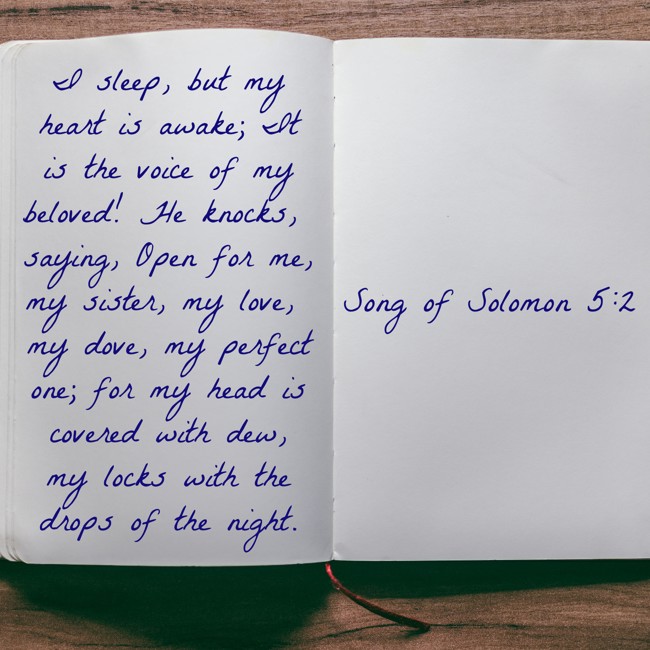 I sleep, but my
heart is awake; It
is the voice of my
beloved! He knocks,
saying, Open for me,
my sister, my love,
my dove, my perfect
one; for my head is
covered with dew,
my locks with the
drops of the night.
Song of Solomon 5:2